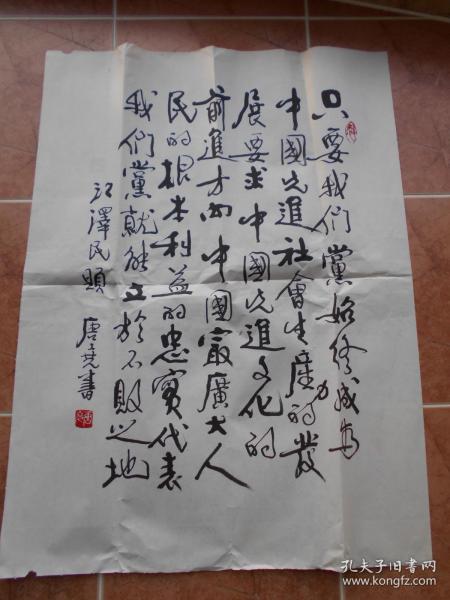 只要我们黨始終成为
中國先進社會生產力的發
展要求中國先進文化的
前進方向中國最廣大人
民的根本利益的忠實代表
我们黨就能立於不敗之地
江澤民題
唐堯書
孔夫子旧书网
www.kongfz.com